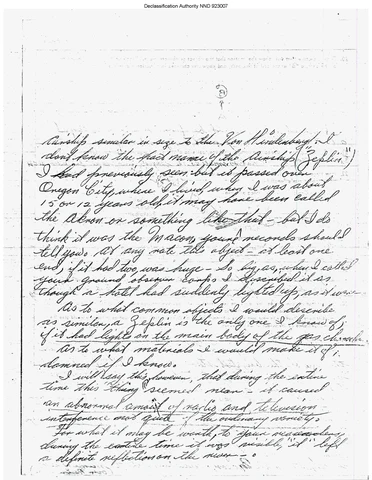 Declassification Authority NND 923007
Airship similar in size to the Von Hindenburg. I
don't know the exact name of the Airship ("Zeplin")
I had previously seen but it passed over
Oregon City, where I lived, when I was about
15 or 12 years old it may have been called
the Akron or something like that - but I do
think it was the Macon, your records should
tell you. At any rate this object - at least one
end, if it had two, was huge - So big, as, when I called
your ground observer corps I described it as
though a hotel had suddenly lighted up, as it were
As to what common objects I would describe
as similar, a Zeplin is the only one I know of,
if it had lights on the main body of the gas chamber
As to what materials I would make it of,
damned if I know.
I will say however, that during the entire
time this "thing" seemed near - it caused
an abnormal amount of radio and television
interference
For what it may be worth, to your
during the entire time it was visible, "it" left
a definite reflection on the